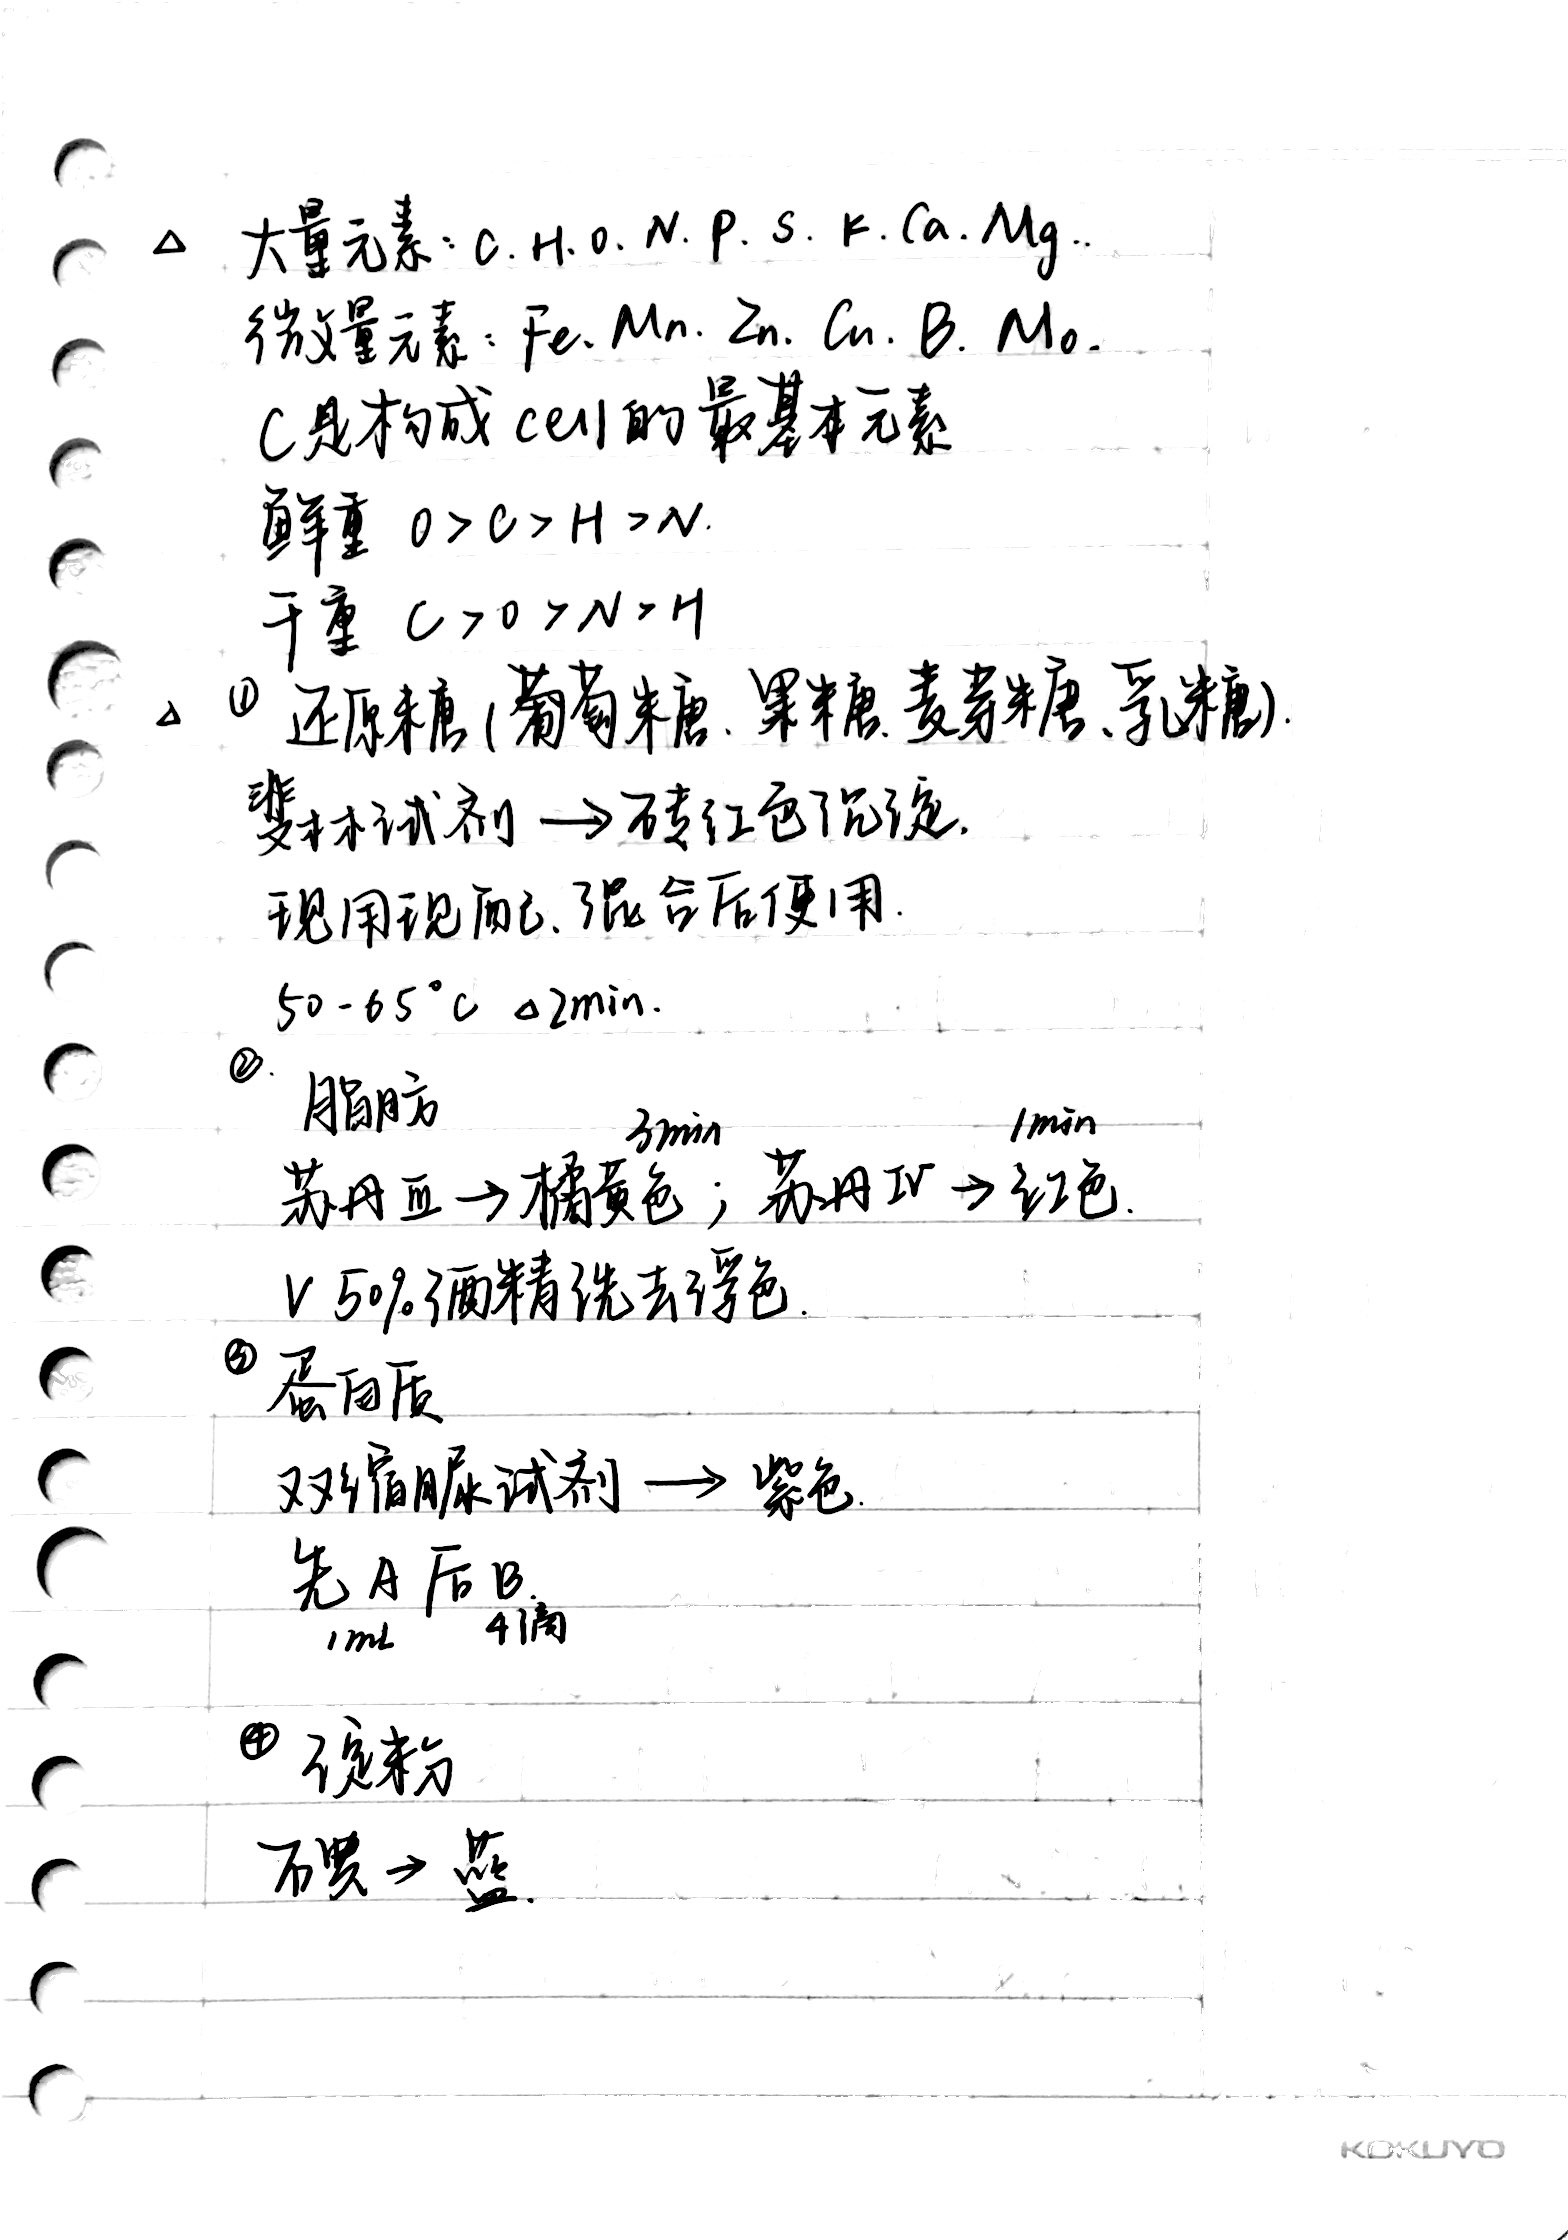 △ 大量元素：C.H.O.N.P.S.K.Ca.Mg..
微量元素：Fe、Mn.Zn.Cu.B.Mo.
C是构成cell的最基本元素
鲜重 O>C>H>N.
干重 C>O>N>H
△ ① 还原糖(葡萄糖、果糖、麦芽糖、乳糖).
斐林试剂→砖红色沉淀.
现用现配、混合后使用.
50-65°C △2min.
②.
脂肪
3min 1min
苏丹Ⅲ→橘黄色；苏丹Ⅳ→红色.
V 50%酒精洗去浮色.
③ 蛋白质
双缩脲试剂→紫色.
先A后B.
1mL 4滴
④ 淀粉
→蓝.
KOKUYO